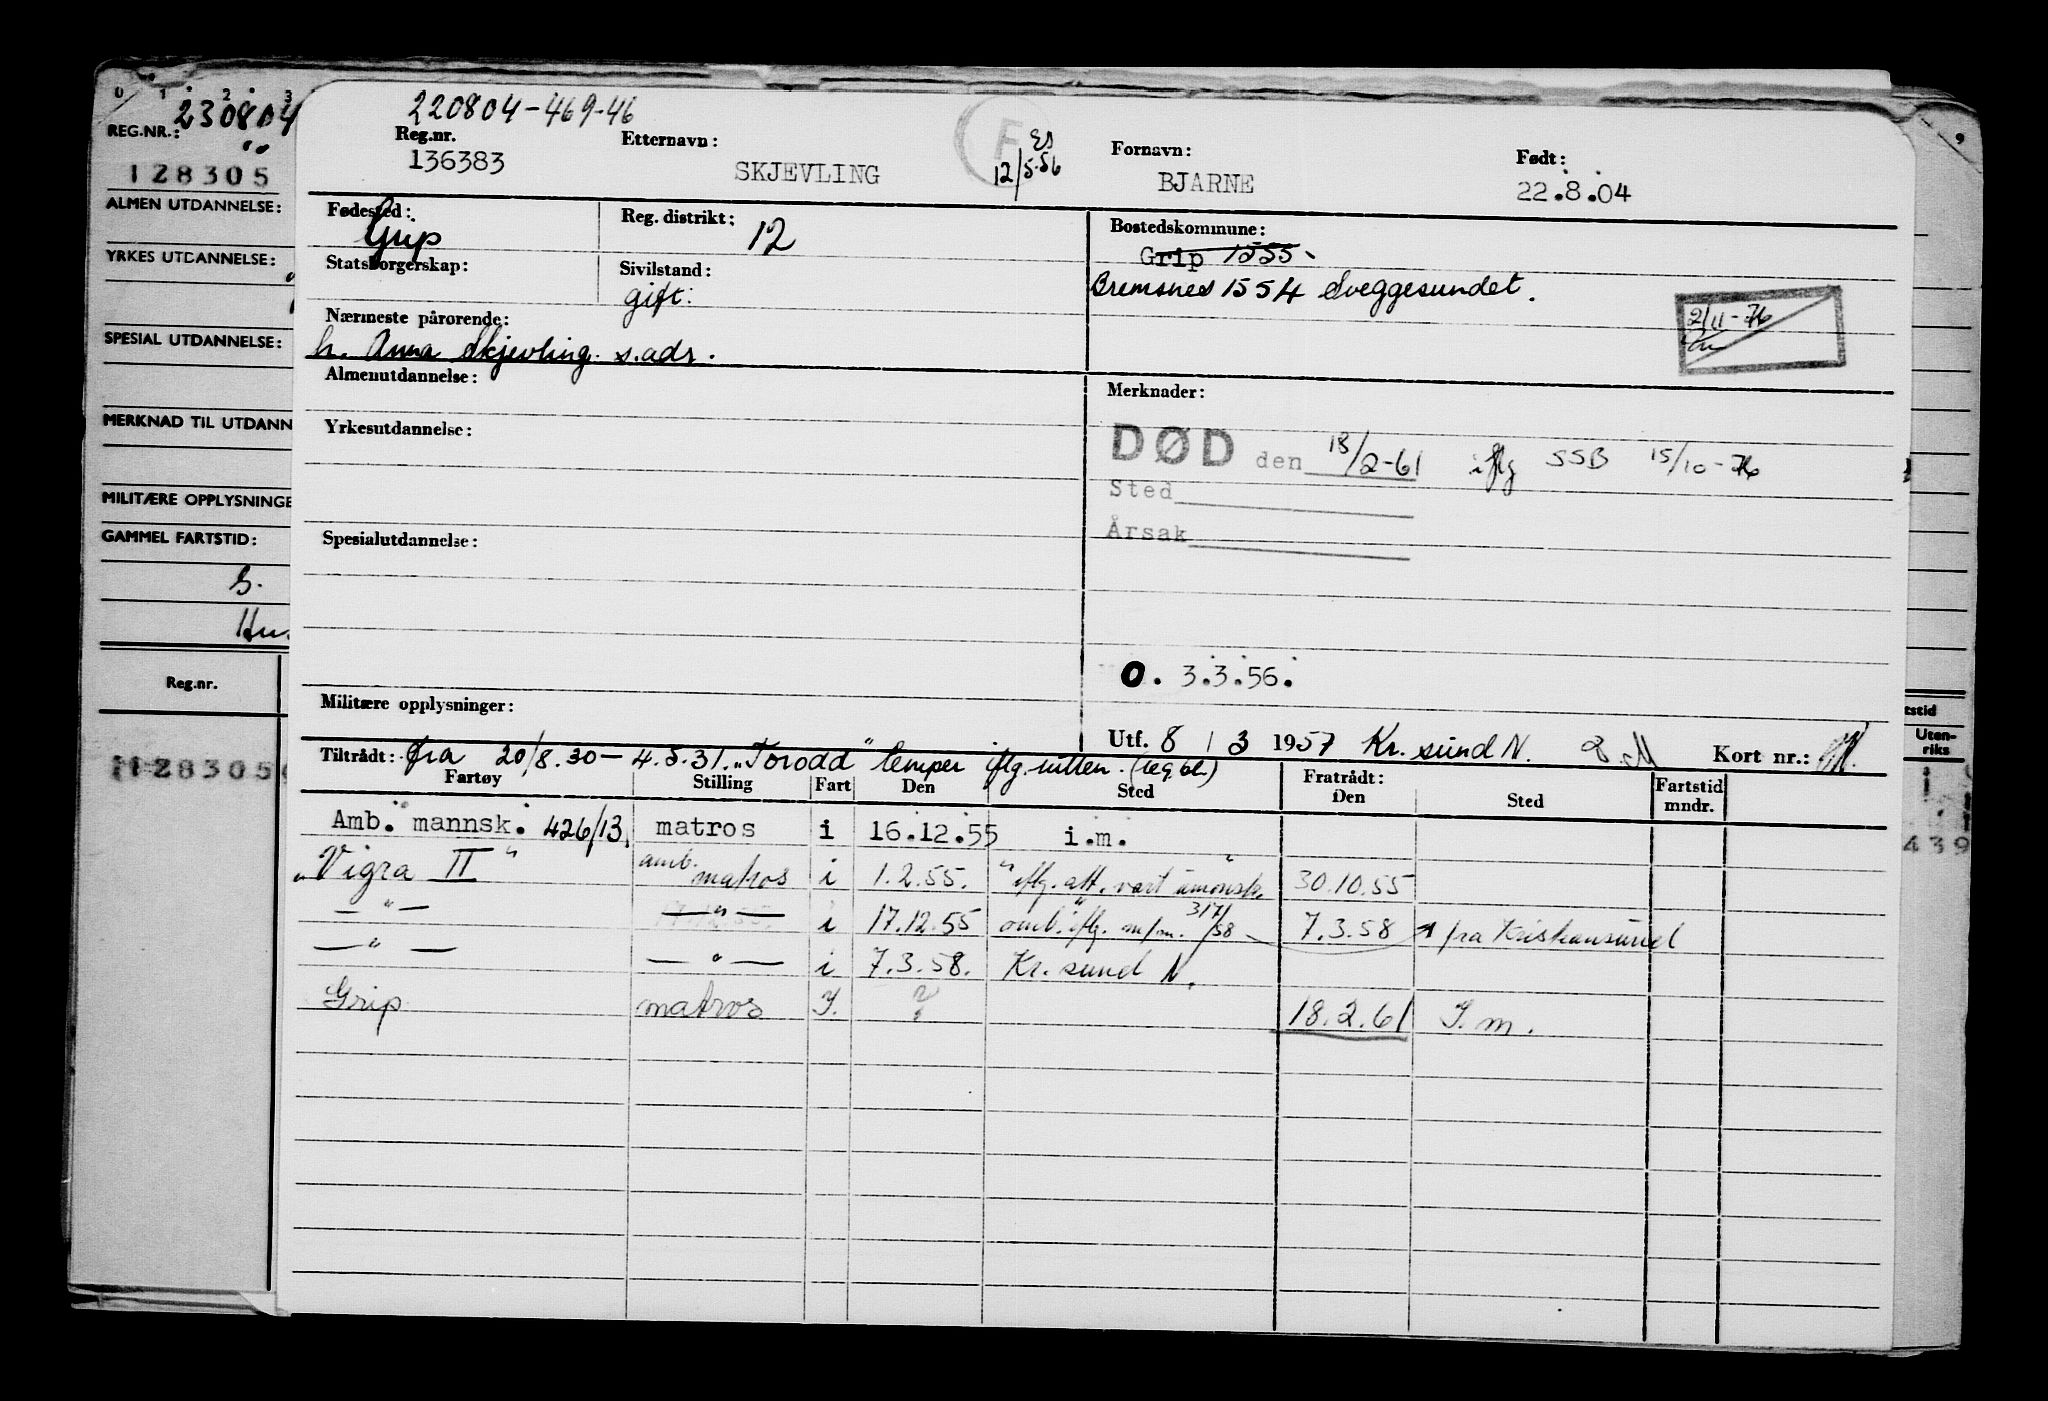 0 1 2 3
230804
REG.NR.:
128305
ALMEN UTDANNELSE:
YRKES UTDANNELSE:
SPESIAL UTDANNELSE:
MERKNAD TIL UTDANN
MILITÆRE OPPLYSNINGE
GAMMEL FARTSTID:
Reg.nr.
128305
9
tstid
Uten-
riks
439
220804-469-46
Reg.nr. Etternavn: F Fornavn: Født:
136383 SKJEVLING 12/5.56 BJARNE 22.8.04
Fødested: Grip Reg. distrikt: 12 Bostedskommune:
Grip 1555
Statsborgerskap: Sivilstand: gift. Bremsnes 1554 Sveggesundet.
2/11-76
Nærmeste pårørende:
h. Anna Skjevling. s.adr.
Almenutdannelse: Merknader:
Yrkesutdannelse: DØD den 18/2-61 iflg SSB 15/10-76
Sted
Årsak
Spesialutdannelse:
O. 3.3.56.
Militære opplysninger:
Utf. 8 / 3 1957 Kr.sund N. Kort nr.:
Tiltrådt: fra 20/8.30 - 4.5.31. "Torodd"
Fartøy Stilling Fart Den Sted Fratrådt: Den Sted Fartstid mndr.
Amb. mannsk. 426/13. matros i 16.12.55 i.m.
"Vigra II" amb. matros i 1.2.55. 30.10.55
— " — — " — i 17.12.55 7.3.58 fra Kristiansund
— " — — " — i 7.3.58. Kr.sund N.
Grip matros I. ? 18.2.61 I.m.